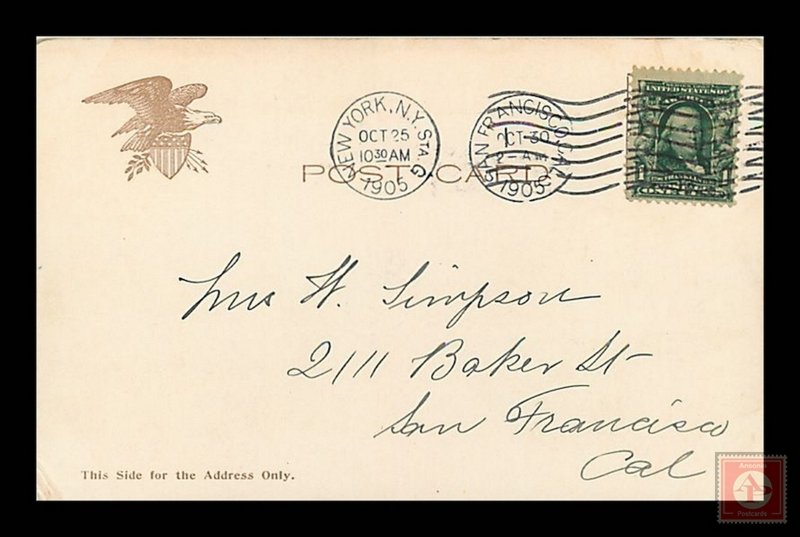 NEW YORK, N.Y. STA G
OCT 25
10 30 AM
1905
SAN FRANCISCO, CAL.
OCT 30
2 - AM
1905
UNITED STATES OF
POST CARD
Mrs W. Simpson
2111 Baker St
San Francisco
Cal
This Side for the Address Only.
Ansonia
Postcards